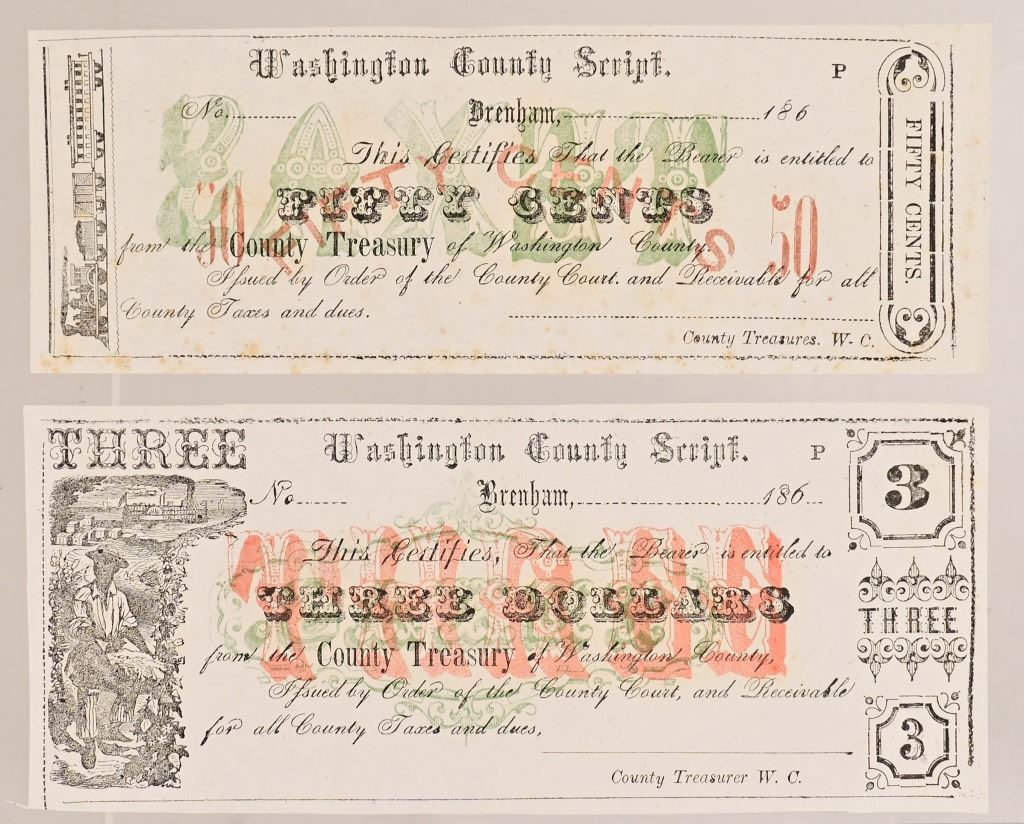 Washington County Script. P
No. Brenham, 186
This Certifies That the Bearer is entitled to
FIFTY CENTS
FIFTY CENTS
50 50
from the County Treasury of Washington County.
Issued by Order of the County Court. and Receivable for all
County Taxes and dues.
County Treasures. W-C.
FIFTY CENTS.
THREE
Washington County Script. P
No Brenham, 186
This Certifies, That the Bearer is entitled to
THREE DOLLARS
THREE
from the County Treasury of Washington County,
Issued by Order of the County Court, and Receivable
for all County Taxes and dues,
County Treasurer W. C.
3
THREE
3